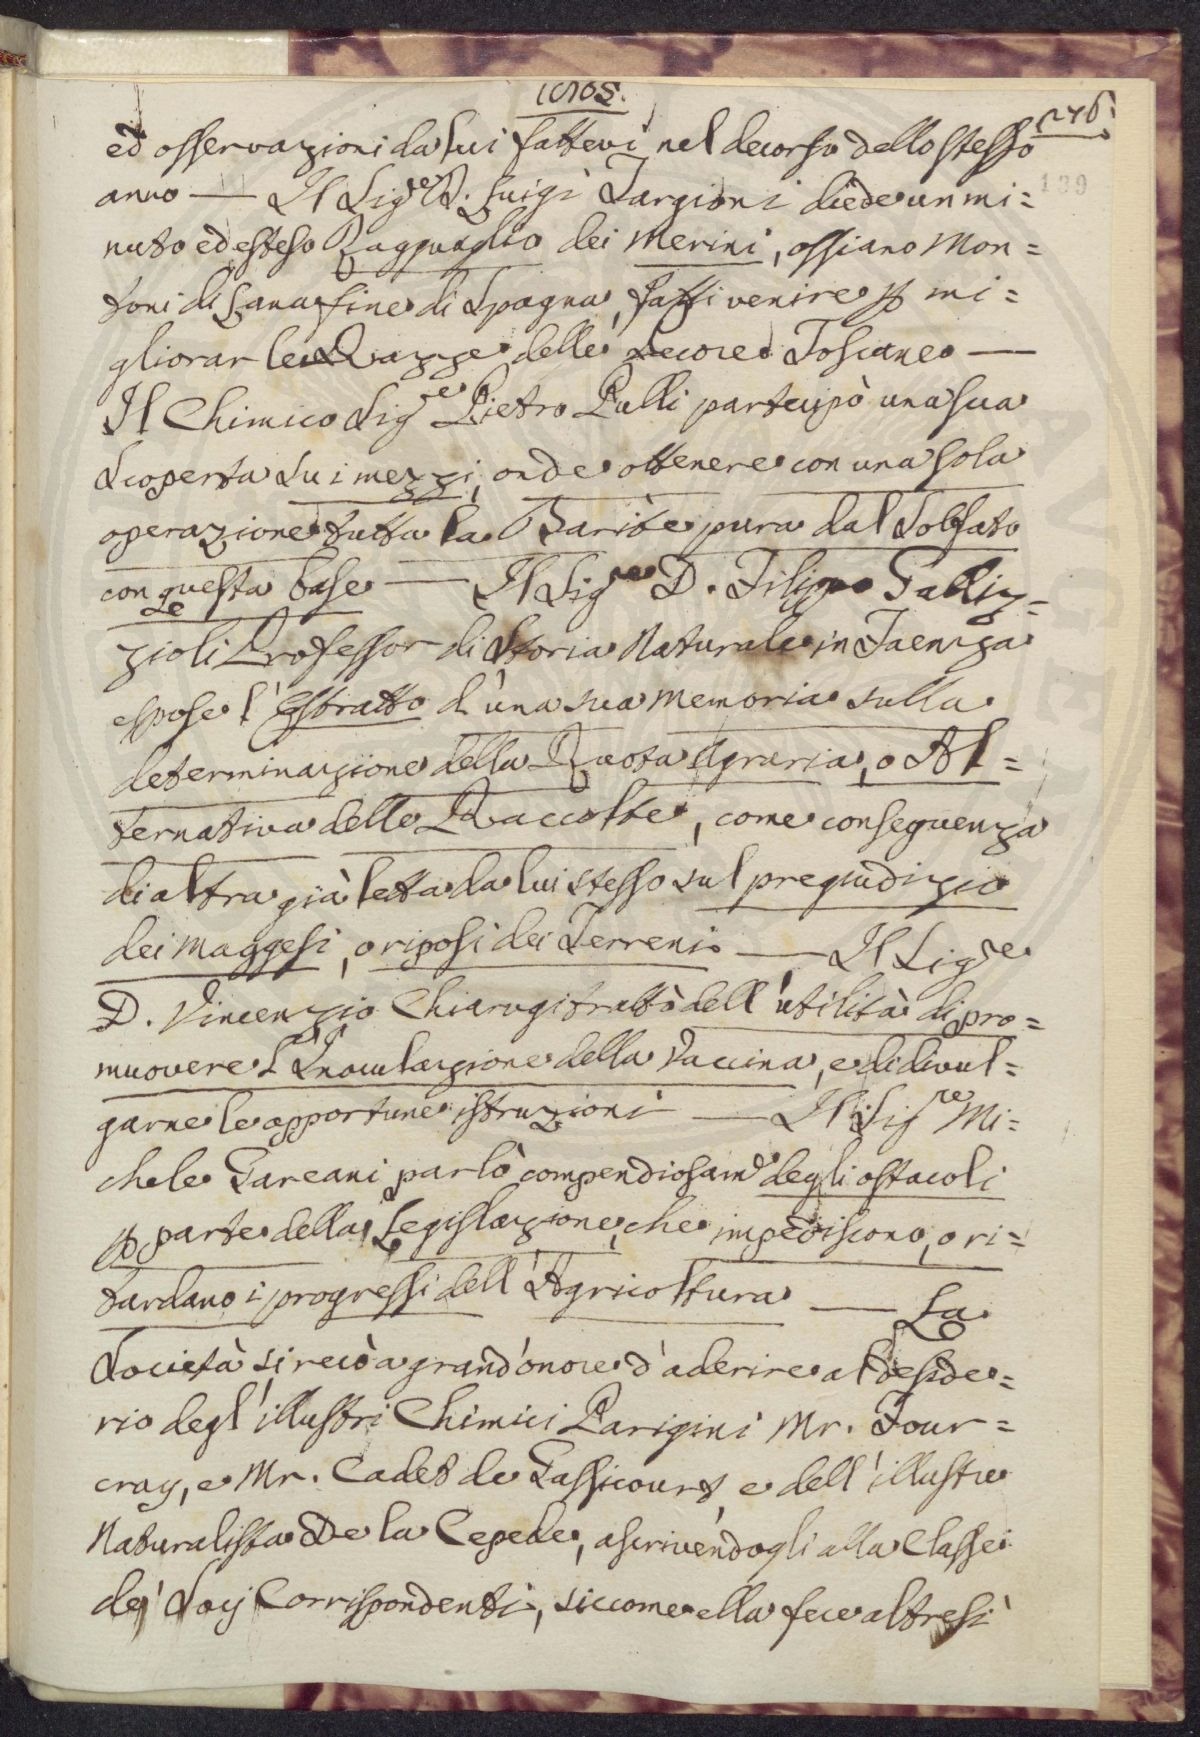 1805.
276.
139
ed osservazioni da lui fattevi nel decorso dello stesso
anno — Il Sig.re D. Luigi Targioni diede un mi=
nuto ed esteso Ragguaglio dei Merini, ossiano Mon=
toni di Lana fine di Spagna, fatti venire p mi=
gliorar le Razze delle Pecore Toscane —
Il Chimico Sig.re Pietro Pulli partecipò una sua
Scoperta su i mezzi, onde ottenere con una sola
operazione tutta la Barite pura dal Solfato
con questa base — Il Sig.re D. Filippo Gallizz=
zioli Professor di Storia Naturale in Faenza
espose l'Estratto d'una sua Memoria sulla
determinazione della Ruota Agraria, o Al=
ternativa delle Raccolte, come conseguenza
di altra già letta da lui stesso sul pregiudizio
dei Maggesi, o riposi dei Terreni — Il Sig.re
D. Vincenzio Chiarugi trattò dell'utilità di pro=
muovere l'Inoculazione della Vaccina, e di divul=
garne le opportune istruzioni — Il Sig.re Mi=
chele parlò compendiosam.e degli ostacoli
p parte della Legislazione, che impediscono, o ri=
tardano i progressi dell'Agricoltura — La
Società si recò a grand'onore d'aderire al deside=
rio degl'illustri Chimici Parigini Mr. Four=
cray, e Mr. Cadet de Gassicourt, e dell'illustre
Naturalista De la Cepede, ascrivendogli alla Classe
dej Socj Corrispondenti, siccome ella fece altresì